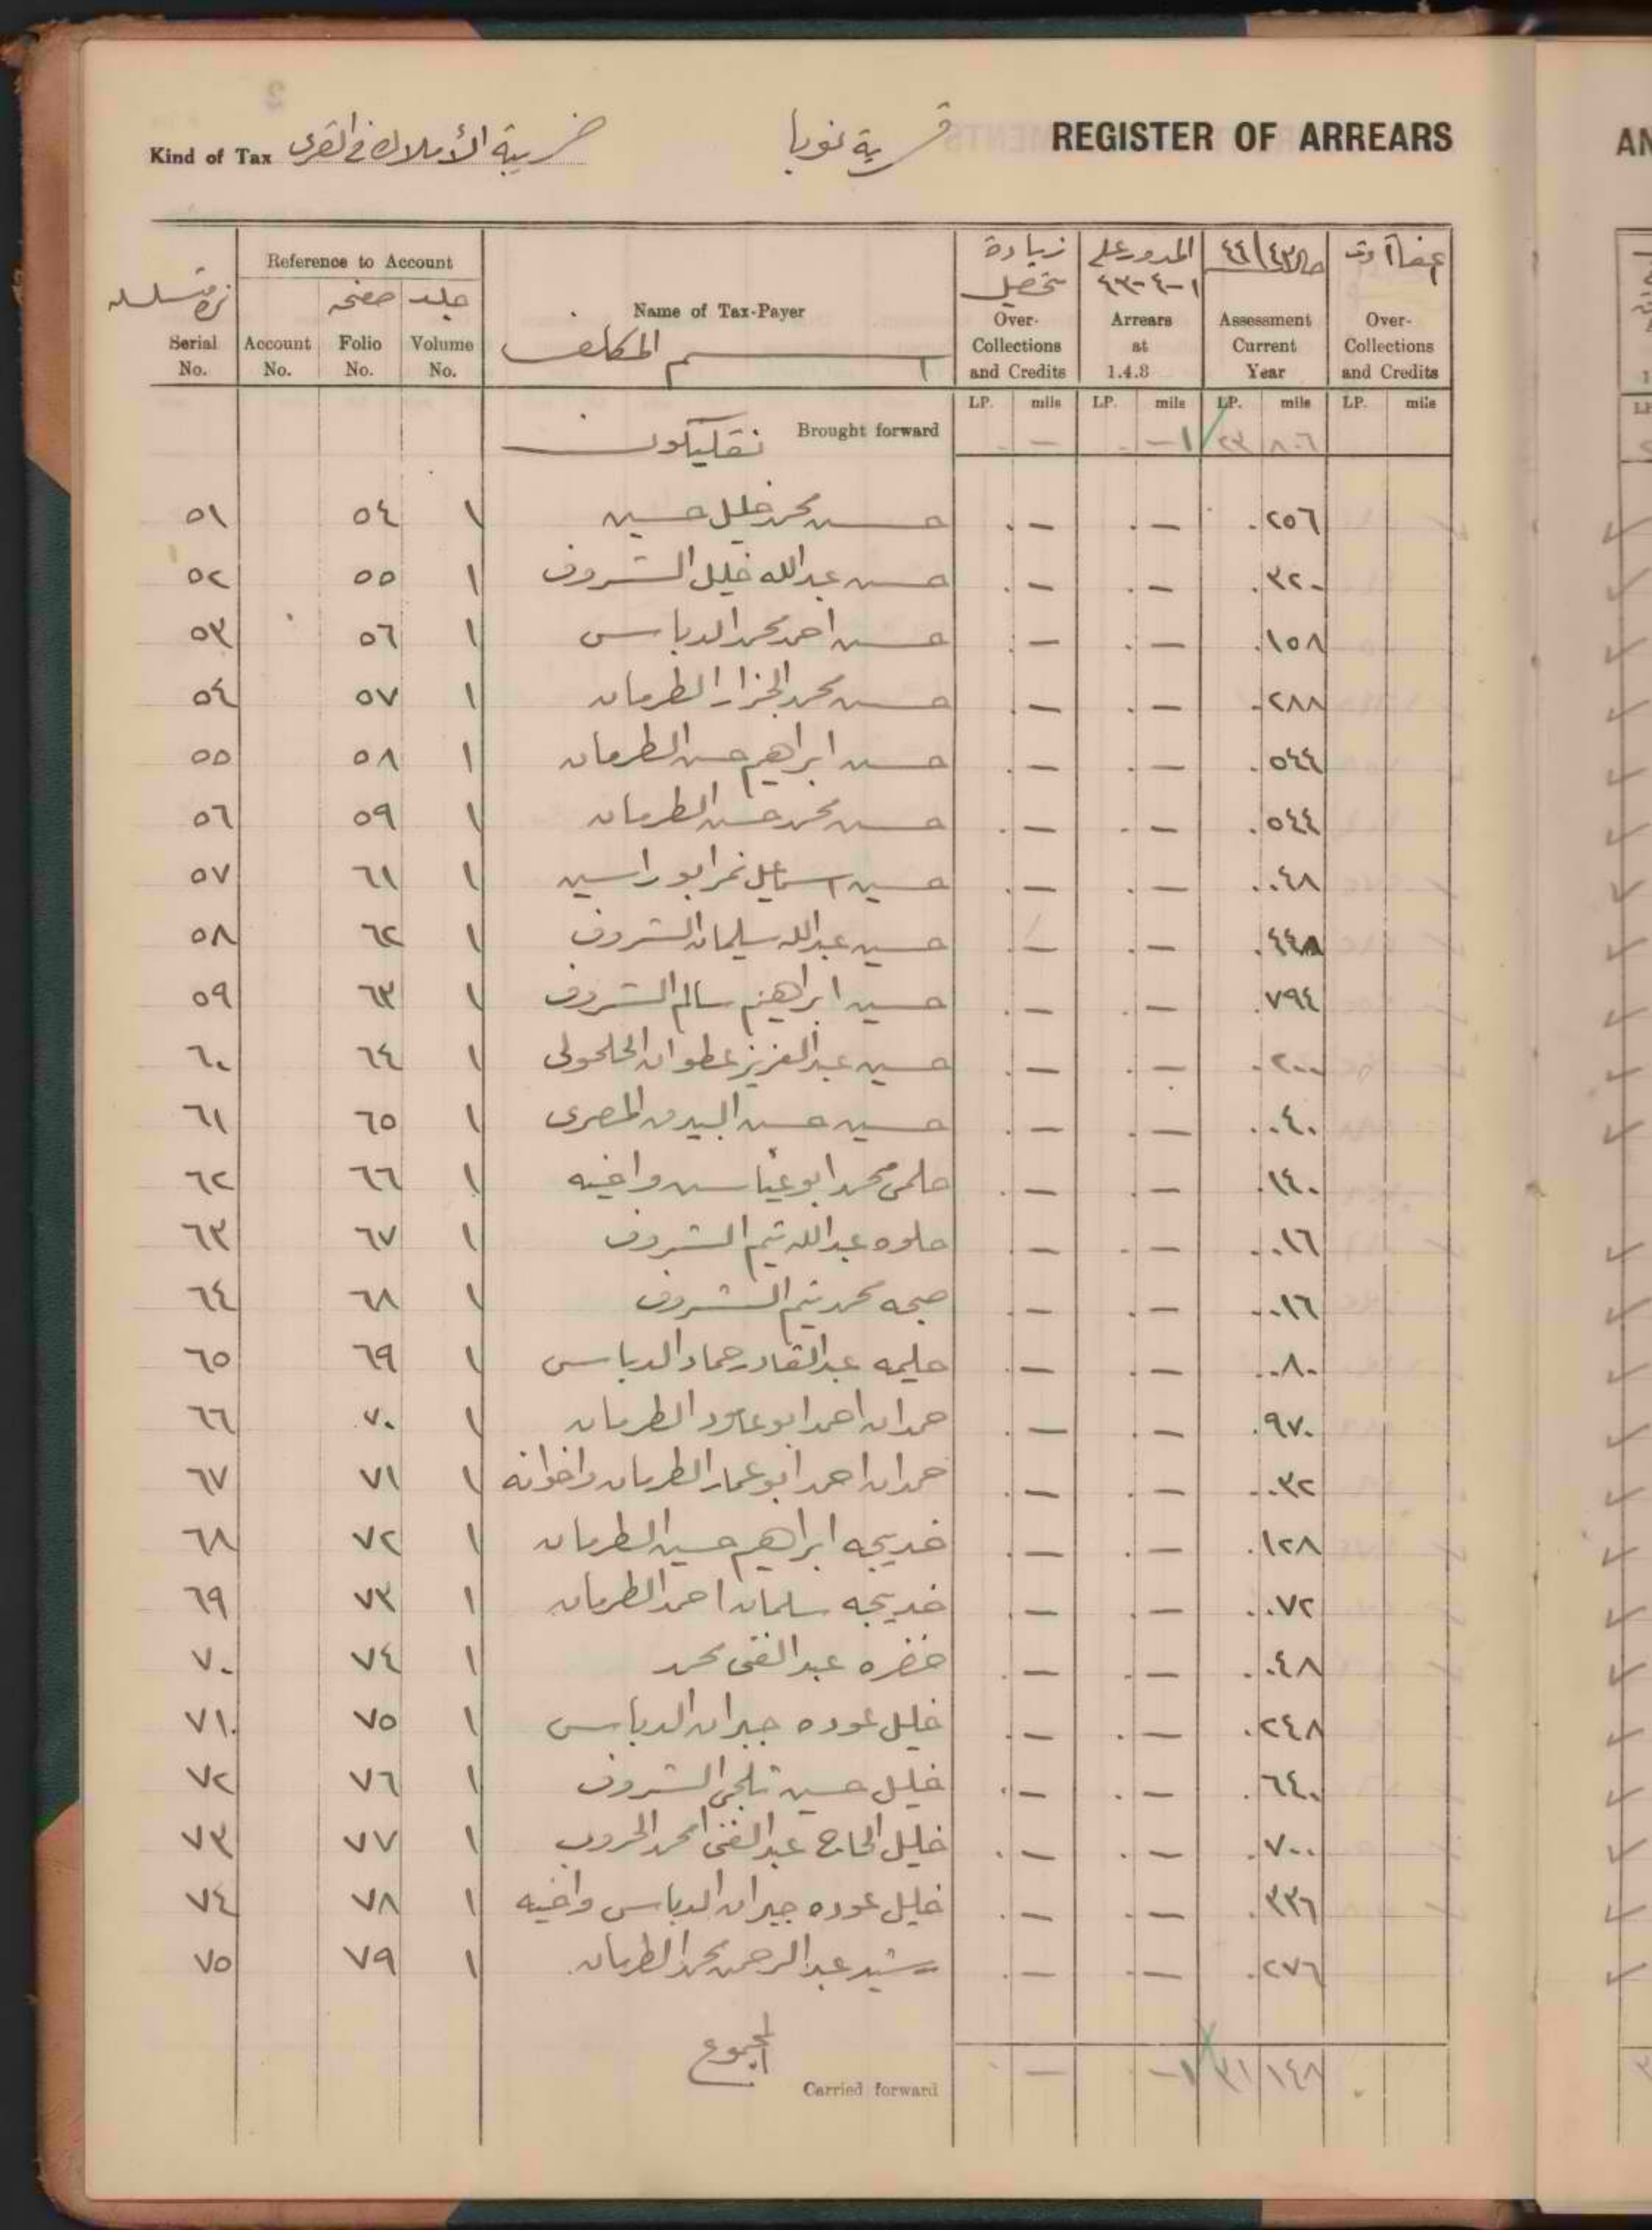 REGISTER OF ARREARS
قرية نوبا
Kind of Tax ضريبة الأملاك في القرى
Reference to Account
نمرة متسلسله صفحه جلد
Serial No. Account No. Folio No. Volume No. Name of Tax-Payer اسم المكلف
زيادة تحصيل Over-Collections and Credits
المدور على ١-٤-٤٣ Arrears at 1.4.3
٤٤/٤٣ Assessment Current Year
Over-Collections and Credits
LP. mils LP. mils LP. mils LP. mils
Brought forward — -١ ٢٣ ٨٠٦
٥١ ٥٤ ١ حسن محمد خليل حسين . — . — . ٢٥٦
٥٢ ٥٥ ١ حسن عبدالله خليل الشروف . — . — . ٣٢٠
٥٣ ٥٦ ١ حسن احمد محمد الدباس . — . — . ١٥٨
٥٤ ٥٧ ١ حسن محمد الجزار الطرمان . — . — . ٢٨٨
٥٥ ٥٨ ١ حسن ابراهيم حسن الطرمان . — . — . ٥٤٤
٥٦ ٥٩ ١ حسن محمد حسن الطرمان . — . — . ٥٤٤
٥٧ ٦١ ١ حسين اسماعيل نمر ابو راسين . — . — . ٠٤٨
٥٨ ٦٢ ١ حسين عبدالله سليمان الشروف . — . — . ٤٤٨
٥٩ ٦٣ ١ حسين ابراهيم سالم الشروف . — . — . ٧٩٤
٦٠ ٦٤ ١ حسين عبدالعزيز عطوان الحلحولى . — . — . ٢٠٠
٦١ ٦٥ ١ حسين حسن المصرى . — . — . ٠٤٠
٦٢ ٦٦ ١ حلمى محمد ابو عياس واخيه . — . — . ١٤٠
٦٣ ٦٧ ١ حلوه عبدالله تيم الشروف . — . — . ٠١٦
٦٤ ٦٨ ١ صبحه محمد تيم الشروف . — . — . ٠١٦
٦٥ ٦٩ ١ حليمه عبدالقادر حماد الدباس . — . — . ٠٨٠
٦٦ ٧٠ ١ حمدان احمد ابو الطرمان . — . — . ٩٧٠
٦٧ ٧١ ١ حمدان احمد ابو عمار الطرمان واخوانه . — . — . ٠٣٢
٦٨ ٧٢ ١ خديجه ابراهيم حسين الطرمان . — . — . ١٢٨
٦٩ ٧٣ ١ خديجه سلمان احمد الطرمان . — . — . ٠٧٢
٧٠ ٧٤ ١ خضره عبدالغنى محمد . — . — . ٠٤٨
٧١ ٧٥ ١ خليل عوده جبران الدباس . — . — . ٢٤٨
٧٢ ٧٦ ١ خليل حسين تلجى الشروف . — . — . ٦٤٠
٧٣ ٧٧ ١ خليل الحاج عبدالغنى محمد الحروب . — . — . ٧٠٠
٧٤ ٧٨ ١ خليل عوده جبران الدباس واخيه . — . — . ٣٣٦
٧٥ ٧٩ ١ رشيد عبدالرحمن محمد الطرمان . — . — . ٢٧٦
المجموع
Carried forward — -١ ٣١ ١٤٨